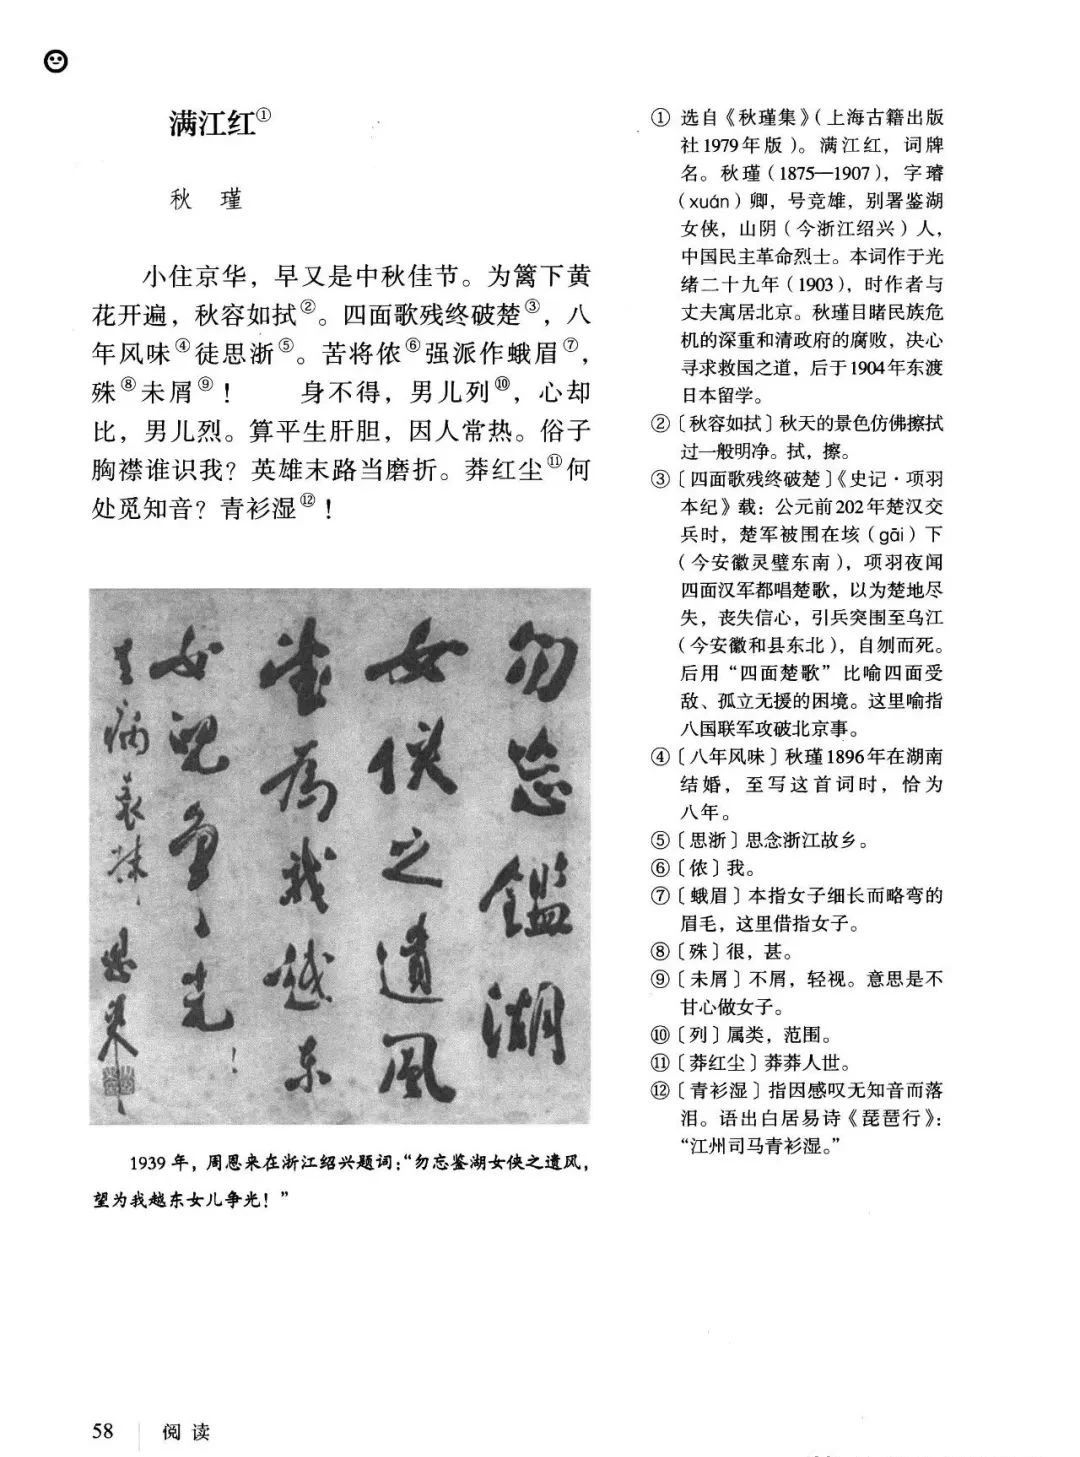 满江红①
秋 瑾
小住京华，早又是中秋佳节。为篱下黄
花开遍，秋容如拭②。四面歌残终破楚③，八
年风味④徒思浙⑤。苦将侬⑥强派作蛾眉⑦，
殊⑧未屑⑨！ 身不得，男儿列⑩，心却
比，男儿烈。算平生肝胆，因人常热。俗子
胸襟谁识我？英雄末路当磨折。莽红尘⑪何
处觅知音？青衫湿⑫！
勿忘鑑湖
女侠之遗风
望为我越东
女儿争光！
1939年，周恩来在浙江绍兴题词：“勿忘鉴湖女侠之遗风，
望为我越东女儿争光！”
① 选自《秋瑾集》（上海古籍出版
社1979年版）。满江红，词牌
名。秋瑾（1875—1907），字璿
（xuán）卿，号竞雄，别署鉴湖
女侠，山阴（今浙江绍兴）人，
中国民主革命烈士。本词作于光
绪二十九年（1903），时作者与
丈夫寓居北京。秋瑾目睹民族危
机的深重和清政府的腐败，决心
寻求救国之道，后于1904年东渡
日本留学。
②〔秋容如拭〕秋天的景色仿佛擦拭
过一般明净。拭，擦。
③〔四面歌残终破楚〕《史记·项羽
本纪》载：公元前202年楚汉交
兵时，楚军被围在垓（gāi）下
（今安徽灵璧东南），项羽夜闻
四面汉军都唱楚歌，以为楚地尽
失，丧失信心，引兵突围至乌江
（今安徽和县东北），自刎而死。
后用“四面楚歌”比喻四面受
敌、孤立无援的困境。这里喻指
八国联军攻破北京事。
④〔八年风味〕秋瑾1896年在湖南
结婚，至写这首词时，恰为
八年。
⑤〔思浙〕思念浙江故乡。
⑥〔侬〕我。
⑦〔蛾眉〕本指女子细长而略弯的
眉毛，这里借指女子。
⑧〔殊〕很，甚。
⑨〔未屑〕不屑，轻视。意思是不
甘心做女子。
⑩〔列〕属类，范围。
⑪〔莽红尘〕莽莽人世。
⑫〔青衫湿〕指因感叹无知音而落
泪。语出白居易诗《琵琶行》：
“江州司马青衫湿。”
58 阅读